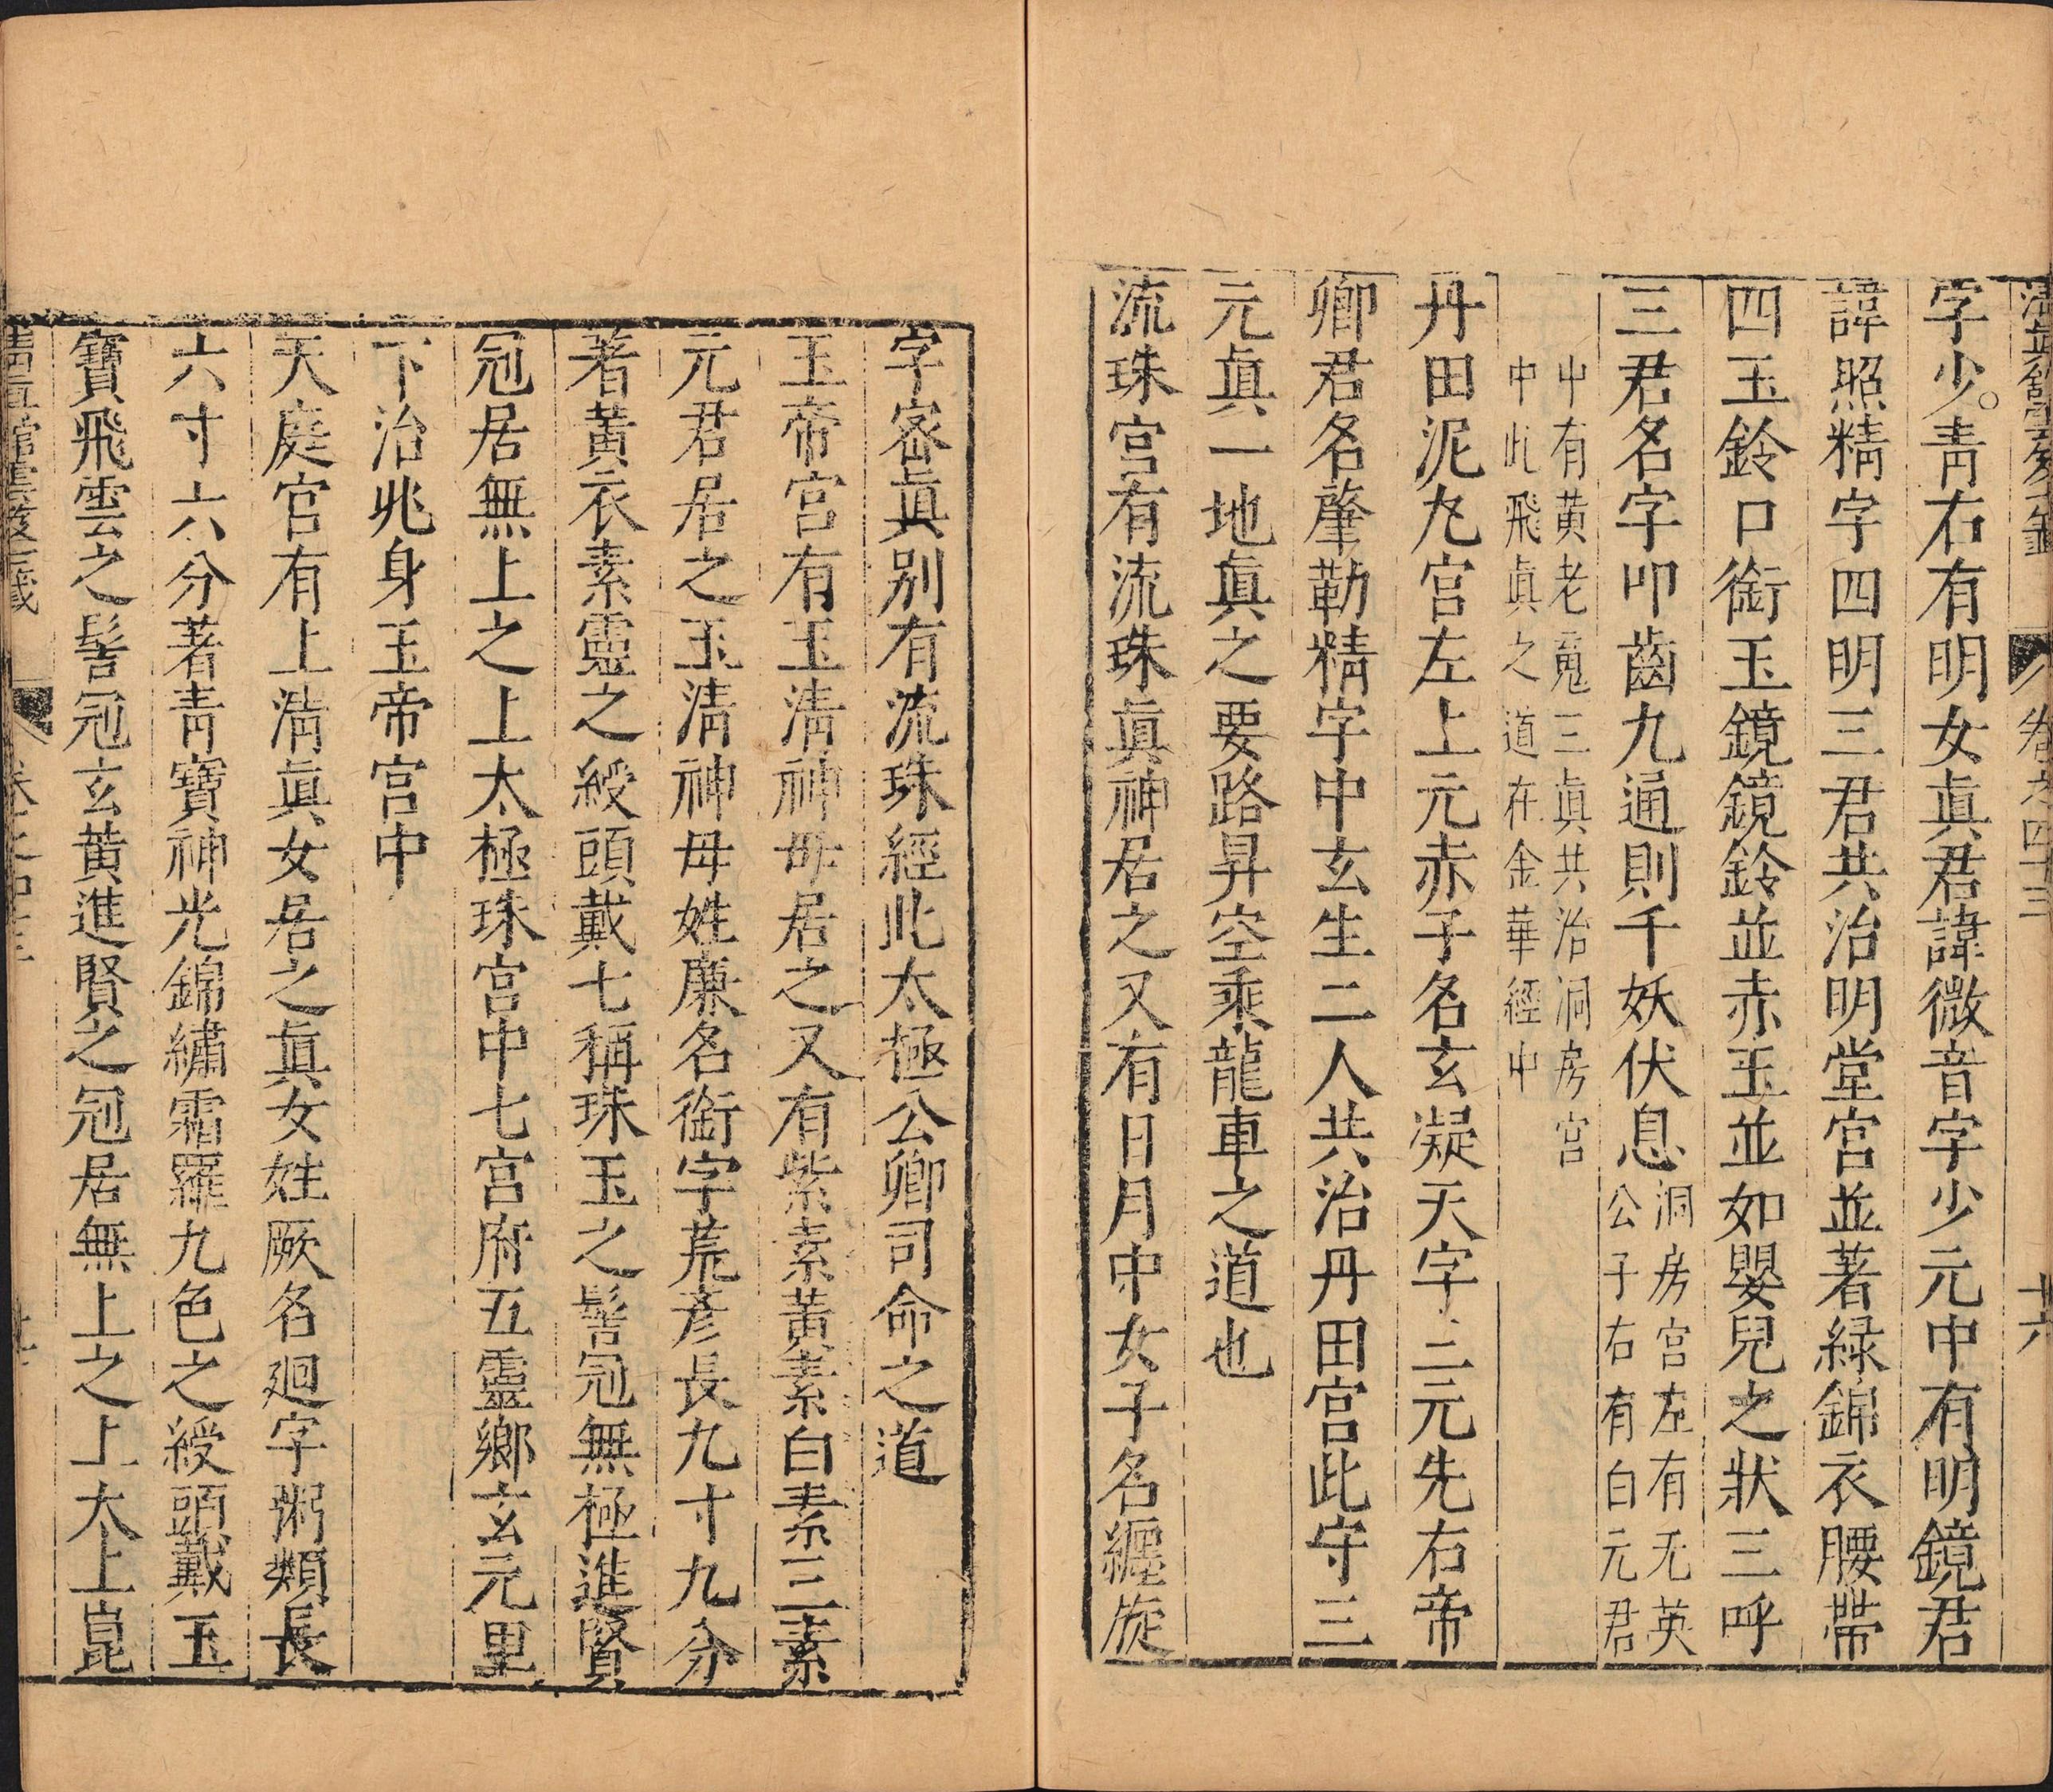 清真館雲笈七籤 卷之四十三 十六
字少青右有明女真君諱微音字少元中有明鏡君
諱照精字四明三君共治明堂宮並著緑錦衣腰帶
四玉鈴口銜玉鏡鏡鈴並赤玉並如嬰兒之狀三呼
三君名字叩齒九通則千妖伏息洞房宮左有无英公子右有白元君
中有黄老魂三眞共治洞房宮中此飛眞之道在金華經中
丹田泥丸宮左上元赤子名玄凝天字三元先右帝
卿君名肇勒精字中玄生二人共治丹田宮此守三
元眞一地眞之要路昇空乘龍車之道也
流珠宮有流珠眞神居之又有日月中女子名纒旋
字密眞别有流珠經此太極公卿司命之道
玉帝宮有玉淸神母居之又有紫素黄素白素三素
元君居之玉淸神母姓廉名銜字荒彥長九寸九分
著黄衣素靈之綬頭戴七稱珠玉之髻冠無極進賢
冠居無上之上太極珠宮中七宮府五靈鄉玄元里
下治兆身玉帝宮中
天庭宮有上淸眞女居之眞女姓厥名廻字粥類長
六寸六分著青寶神光錦繡霜羅九色之綬頭戴玉
寶飛雲之髻冠玄黄進賢之冠居無上之上太上崑